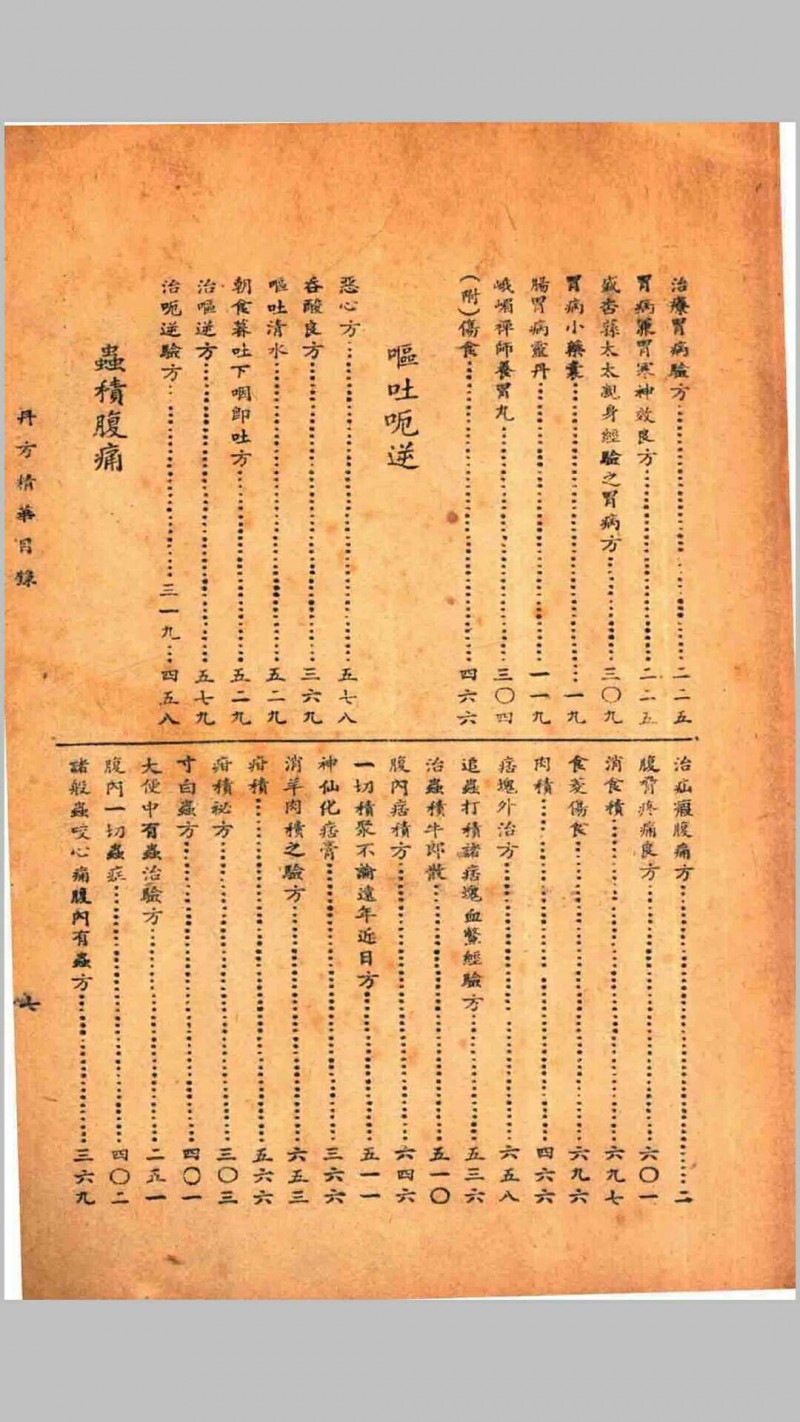 治療胃病驗方……二二五
胃病兼胃寒神效良方……二二五
盛杏蓀太太親身經驗之胃病方……三〇九
胃病小藥囊……一九
腸胃病靈丹……一一九
峨嵋禪師養胃丸……三〇四
(附)傷食……四六六
嘔吐呃逆
惡心方……五七八
吞酸良方……三六九
嘔吐清水……五二九
朝食暮吐下咽即吐方……五二九
治嘔逆方……五七九
治呃逆驗方……三一九…四五八
蟲積腹痛
治疝瘕腹痛方……二
腹脅疼痛良方……六〇一
消食積……六九七
食菱傷食……六九六
肉積……四六六
痞塊外治方……六五八
追蟲打積諸痞塊血鱉經驗方……五三六
治蟲積牛郎散……五一〇
腹內痞積方……六四六
一切積聚不論遠年近日方……五一一
神仙化痞膏……三六六
消羊肉積之驗方……六五三
疳積……五六六
疳積祕方……三〇三
寸白蟲方……四〇一
大便中有蟲治驗方……二五一
腹內一切蟲症……四〇二
諸般蟲咬心痛腹內有蟲方……三六九
丹方精華目錄
七